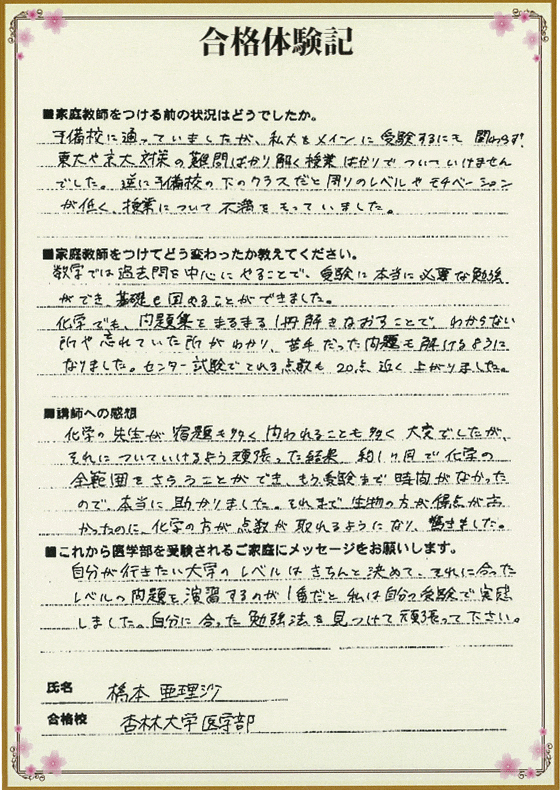 合格体験記
■家庭教師をつける前の状況はどうでしたか。
予備校に通っていましたが、私大をメインに受験するにも関わらず、
東大や京大対策の難問ばかり解く授業ばかりでついていけません
でした。逆に予備校の下のクラスだと周りのレベルやモチベーション
が低く、授業について不満をもっていました。
■家庭教師をつけてどう変わったか教えてください。
数学では過去問を中心にやることで、受験に本当に必要な勉強
ができ、基礎を固めることができました。
化学でも、問題集をまるまる1冊解きなおすことで、わからない
所や忘れていた所がわかり、苦手だった問題も解けるように
なりました。センター試験でとれる点数も20点近く上がりました。
■講師への感想
化学の先生が宿題も多く問われることも多く大変でしたが、
それについていけるよう頑張った結果、約1ヶ月で化学の
全範囲をさらうことができ、もう受験まで時間がなかった
ので、本当に助かりました。それまで生物の方が得点が高
かったのに、化学の方が点数が取れるようになり、驚きました。
■これから医学部を受験されるご家庭にメッセージをお願いします。
自分が行きたい大学のレベルはきちんと決めて、それに合った
レベルの問題を演習するのが1番だと私は自分の受験で実感
しました。自分に合った勉強法を見つけて頑張って下さい。
氏名 橋本 亜理
合格校 杏林大学医学部